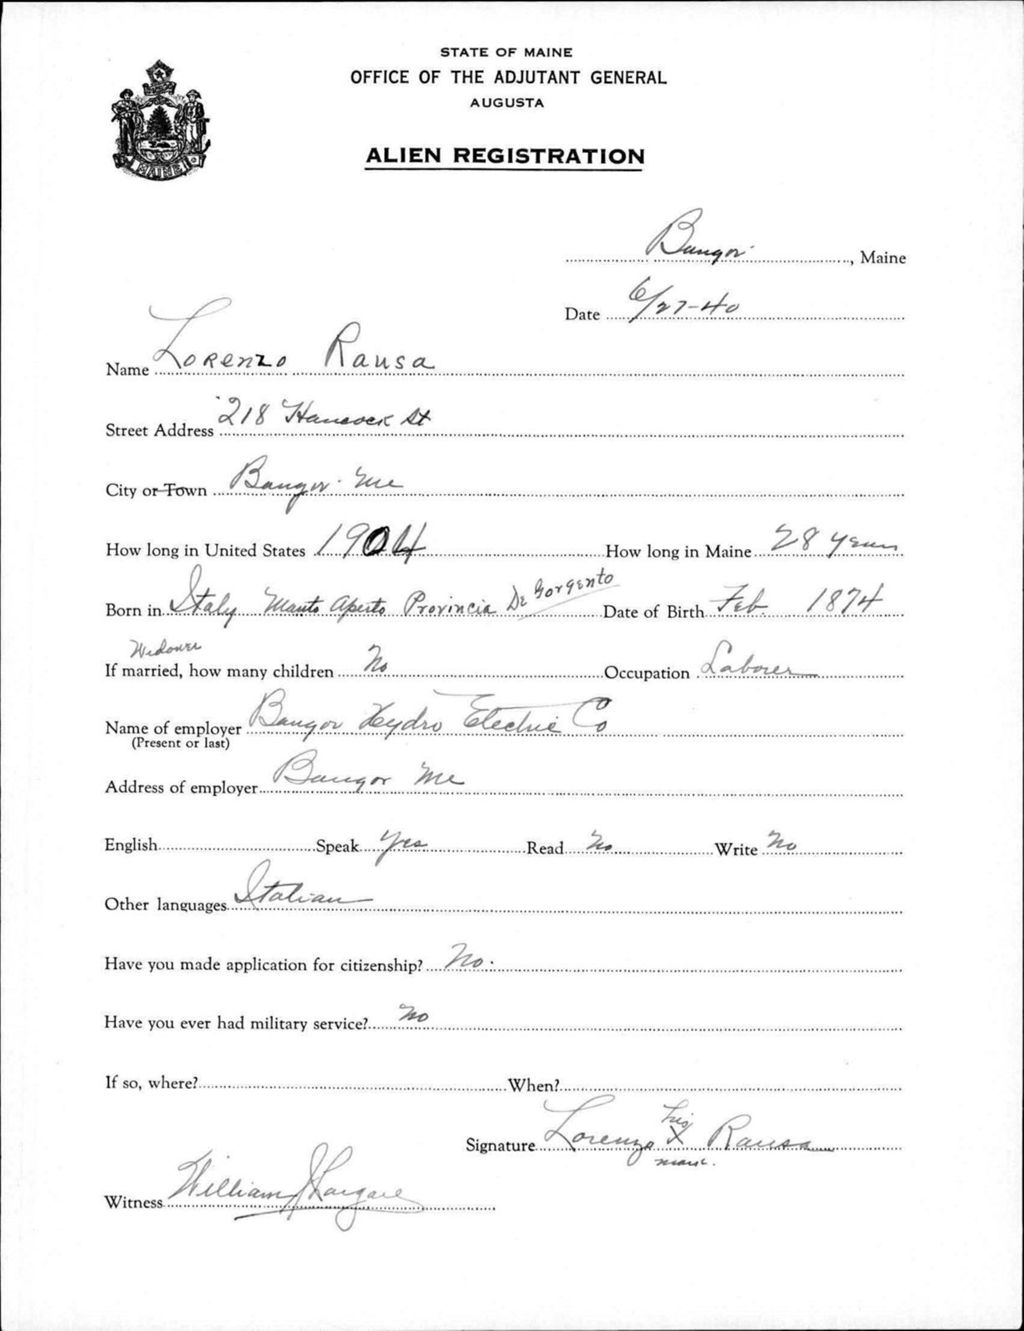 STATE OF MAINE
OFFICE OF THE ADJUTANT GENERAL
AUGUSTA
ALIEN REGISTRATION
MAINE
Bangor, Maine
Date 6/27-40
Name Lorenzo Rausa
Street Address 218 Hancock St
City or Town Bangor Me
How long in United States 1904 How long in Maine 28 years
Born in Italy Manto Aperto Provincia De Gorgento Date of Birth Feb 1874
Widower
If married, how many children No Occupation Laborer
Name of employer Bangor Hydro Electric Co
(Present or last)
Address of employer Bangor Me
English Speak Yes Read No Write No
Other languages Italian
Have you made application for citizenship? No.
Have you ever had military service? No
If so, where? When?
Signature Lorenzo his X mark. Rausa
Witness William